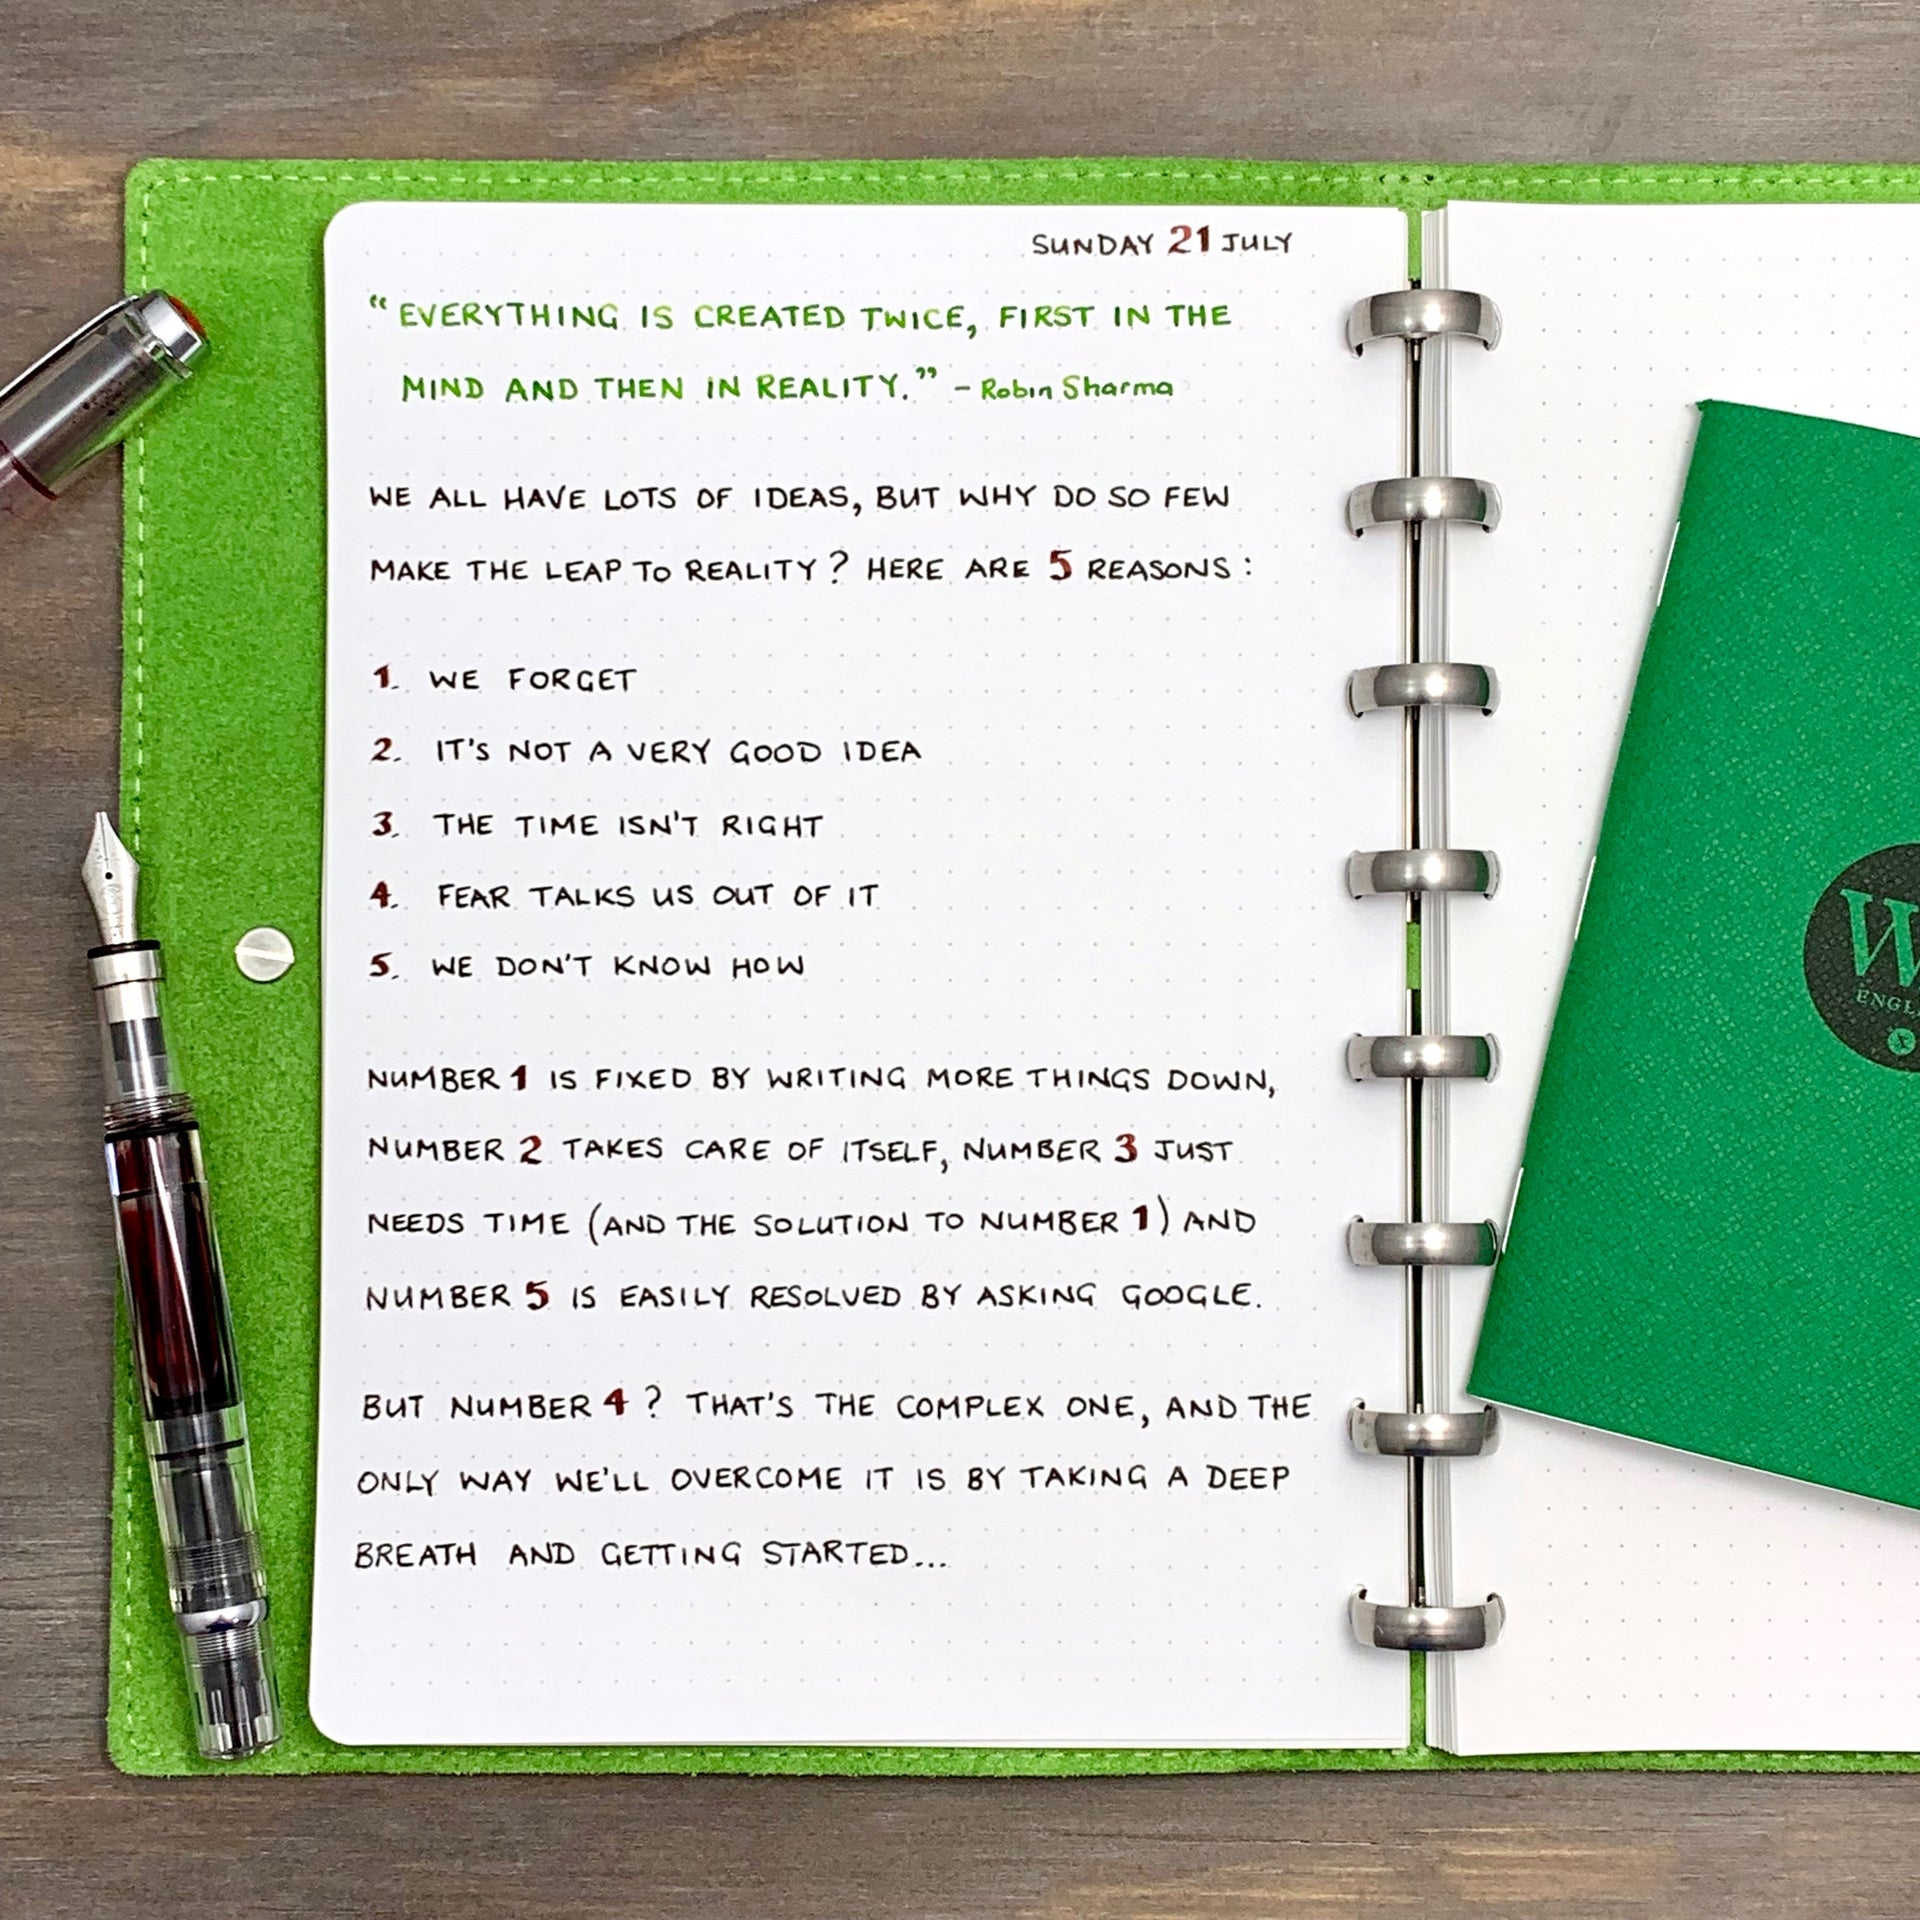 SUNDAY 21 JULY
“EVERYTHING IS CREATED TWICE, FIRST IN THE
MIND AND THEN IN REALITY.” – Robin Sharma
WE ALL HAVE LOTS OF IDEAS, BUT WHY DO SO FEW
MAKE THE LEAP TO REALITY? HERE ARE 5 REASONS:
1. WE FORGET
2. IT'S NOT A VERY GOOD IDEA
3. THE TIME ISN'T RIGHT
4. FEAR TALKS US OUT OF IT
5. WE DON'T KNOW HOW
NUMBER 1 IS FIXED BY WRITING MORE THINGS DOWN,
NUMBER 2 TAKES CARE OF ITSELF, NUMBER 3 JUST
NEEDS TIME (AND THE SOLUTION TO NUMBER 1) AND
NUMBER 5 IS EASILY RESOLVED BY ASKING GOOGLE.
BUT NUMBER 4? THAT'S THE COMPLEX ONE, AND THE
ONLY WAY WE'LL OVERCOME IT IS BY TAKING A DEEP
BREATH AND GETTING STARTED...
W